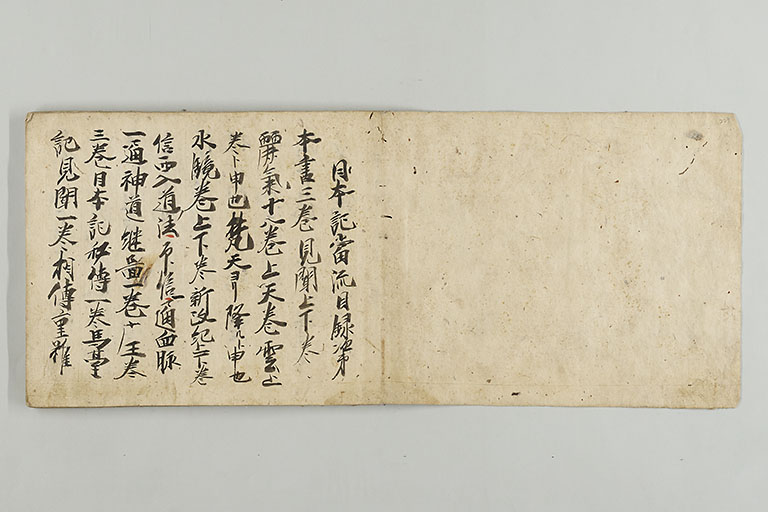 日本記當流目録次第
本書三巻見聞上下巻
麗氣十八巻上天巻雲上
巻ト申也梵天 降ルト申也
水鏡巻上下巻新改記上下巻
信西入道法 信一通血脈
一通神道継圖一巻十 王巻
三巻日本記秘傳一巻馬臺
記見聞一巻相傳重雖